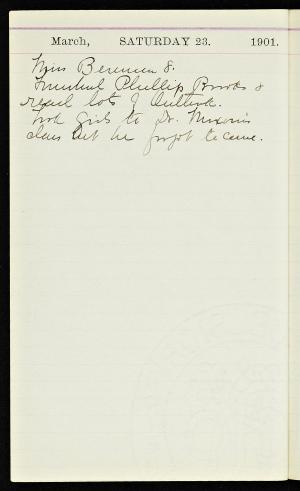 March, SATURDAY 23. 1901.
Miss 8.
Finished Phillip Brooks &
read lots of
Took girls to Dr.
class but he forgot to come.